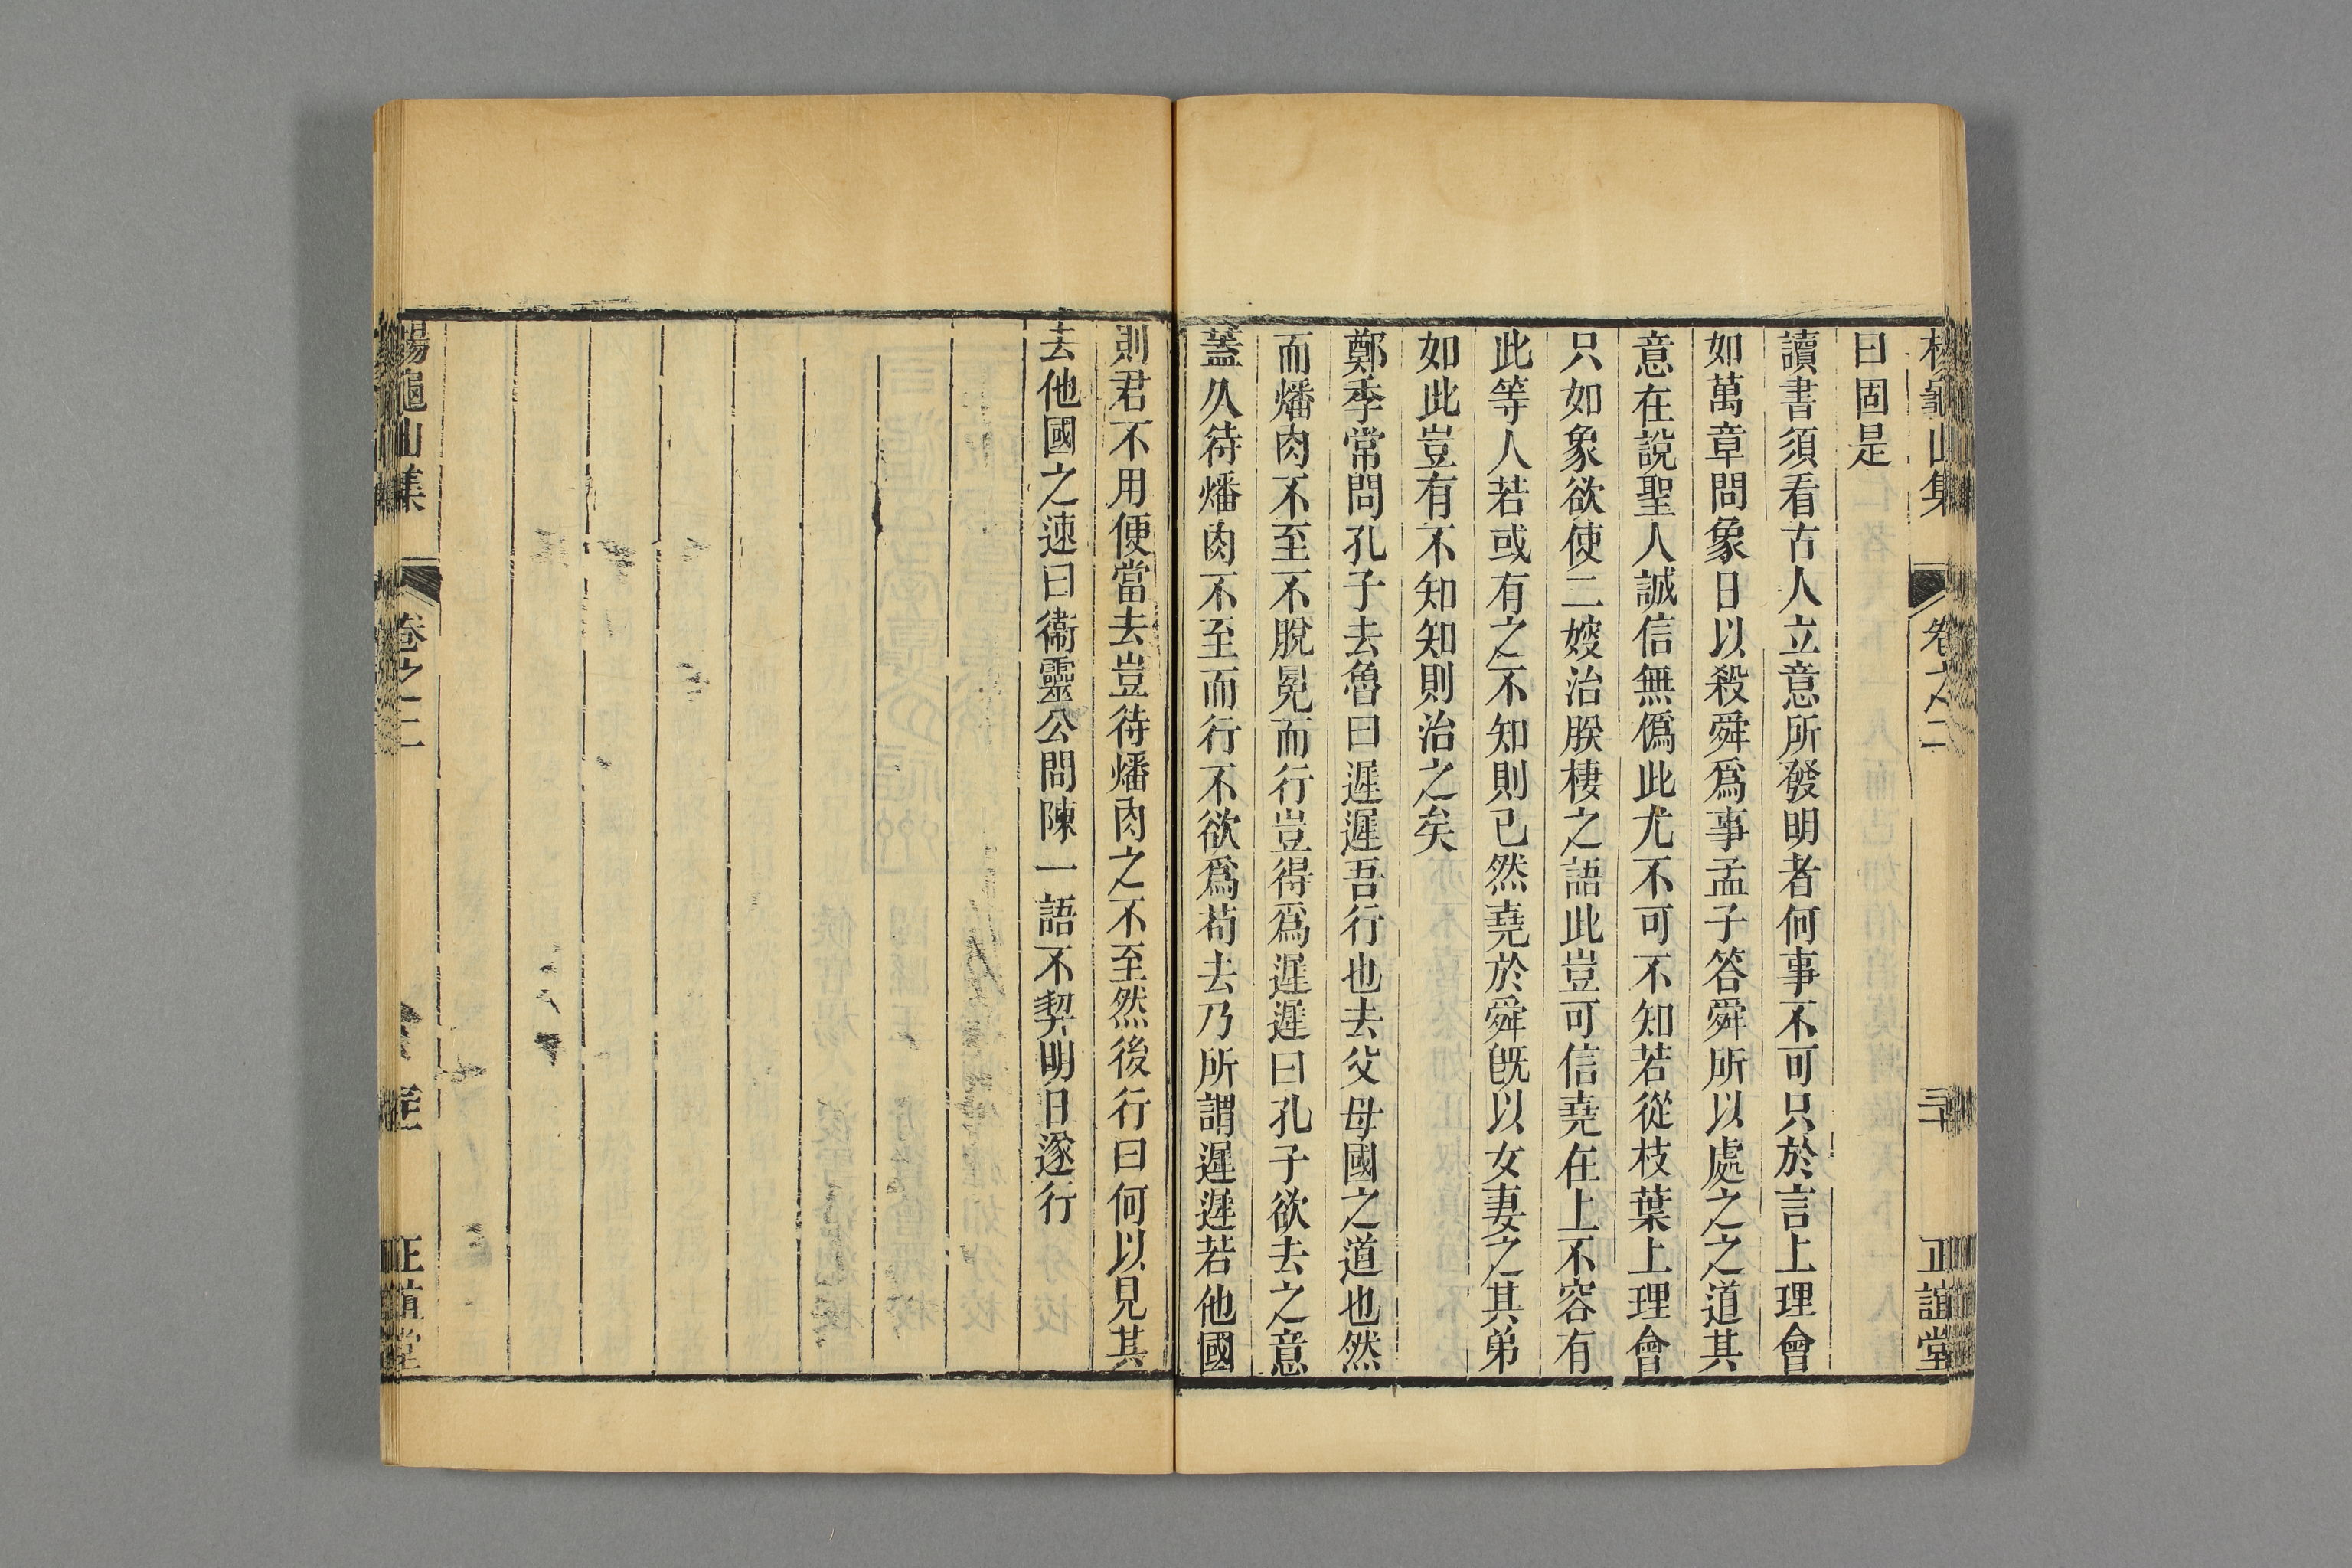 楊龜山集 卷之二 三十 正誼堂
曰固是
讀書須看古人立意所發明者何事不可只於言上理會
如萬章問象日以殺舜爲事孟子答舜所以處之之道其
意在說聖人誠信無僞此尤不可不知若從枝葉上理會
只如象欲使二嫂治朕棲之語此豈可信堯在上不容有
此等人若或有之不知則已然堯於舜旣以女妻之其弟
如此豈有不知知則治之矣
鄭季常問孔子去魯曰遲遲吾行也去父母國之道也然
而燔肉不至不脫冕而行豈得爲遲遲曰孔子欲去之意
蓋久待燔肉不至而行不欲爲苟去乃所謂遲遲若他國
則君不用便當去豈待燔肉之不至然後行曰何以見其
去他國之速曰衞靈公問陳一語不契明日遂行
楊龜山集 卷之二 正誼堂